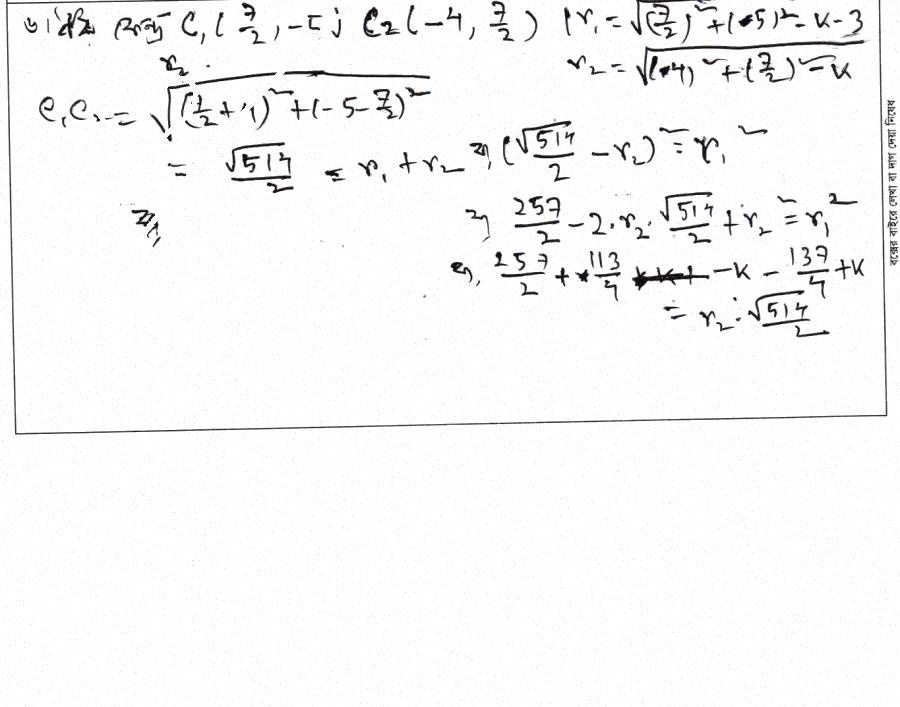 কেন্দ্র C₁(7/2, -5); C₂(-4, 7/2) | r₁ = √((7/2)² + (-5)² - K - 3)
r₂ = √((-4)² + (7/2)² - K)
r₂
C₁C₂ = √((7/2 + 4)² + (-5 - 7/2)²)
= √514/2 = r₁ + r₂ বা, (√514/2 - r₂)² = r₁²
বা, বা, 257/2 - 2·r₂·√514/2 + r₂² = r₁²
বা, 257/2 + 113/4 - K - 137/4 + K
= r₂·√514/2
বক্সের বাইরে লেখা বা দাগ দেয়া নিষেধ